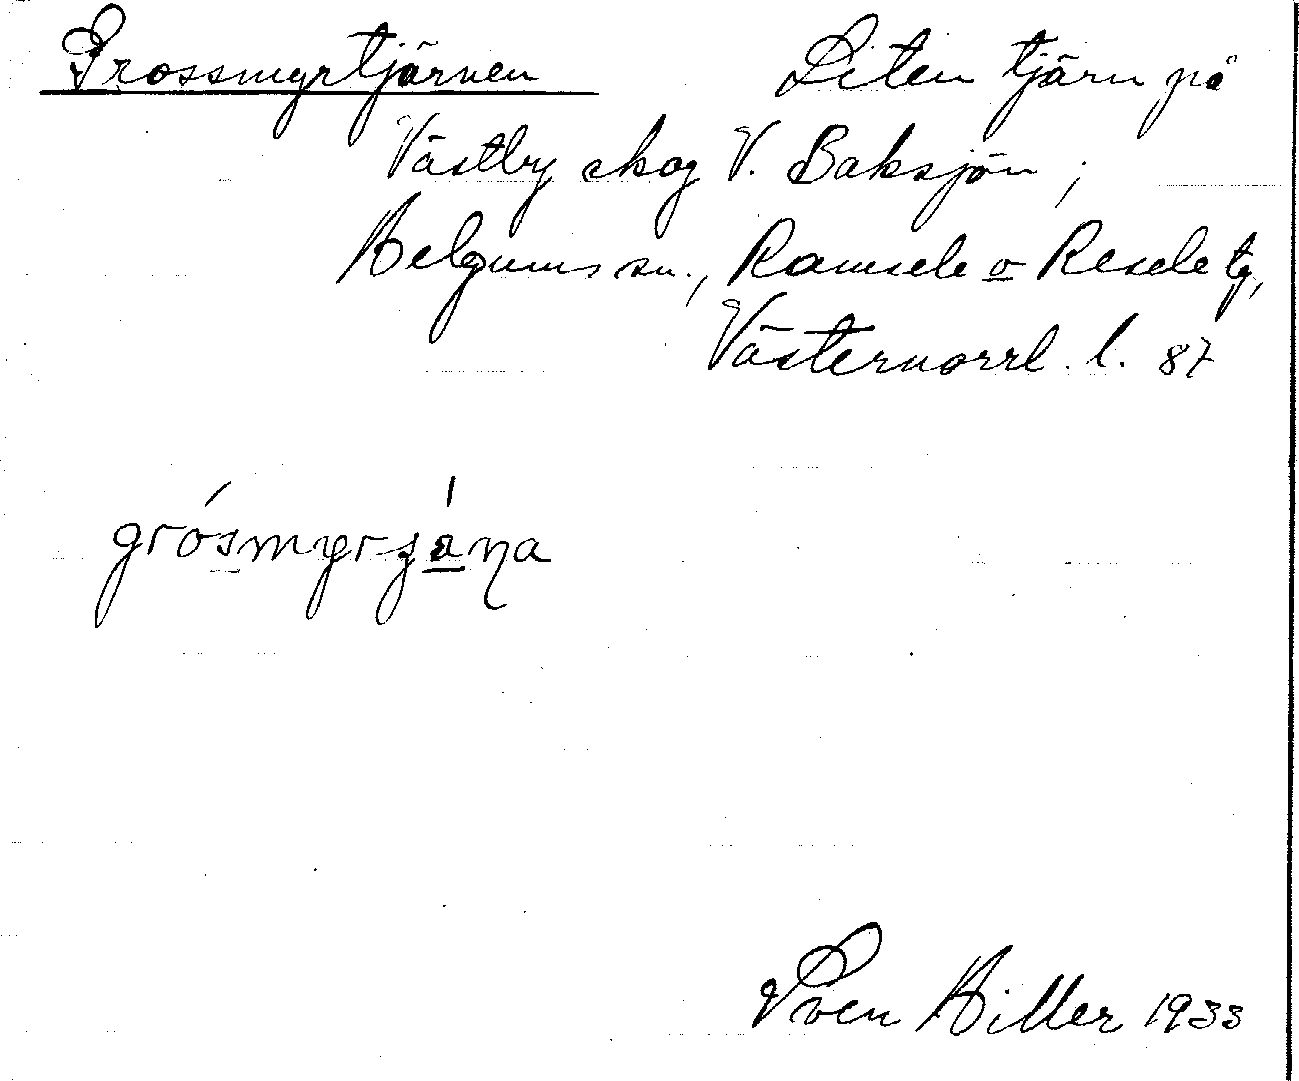 Grossmyrtjärnen Liten tjärn på
Västby skog V. Baksjön;
Helgums sn., Ramsele o Resele tg,
Västernorrl. l. 87
grósmyrʒána
Sven Hiller 1933